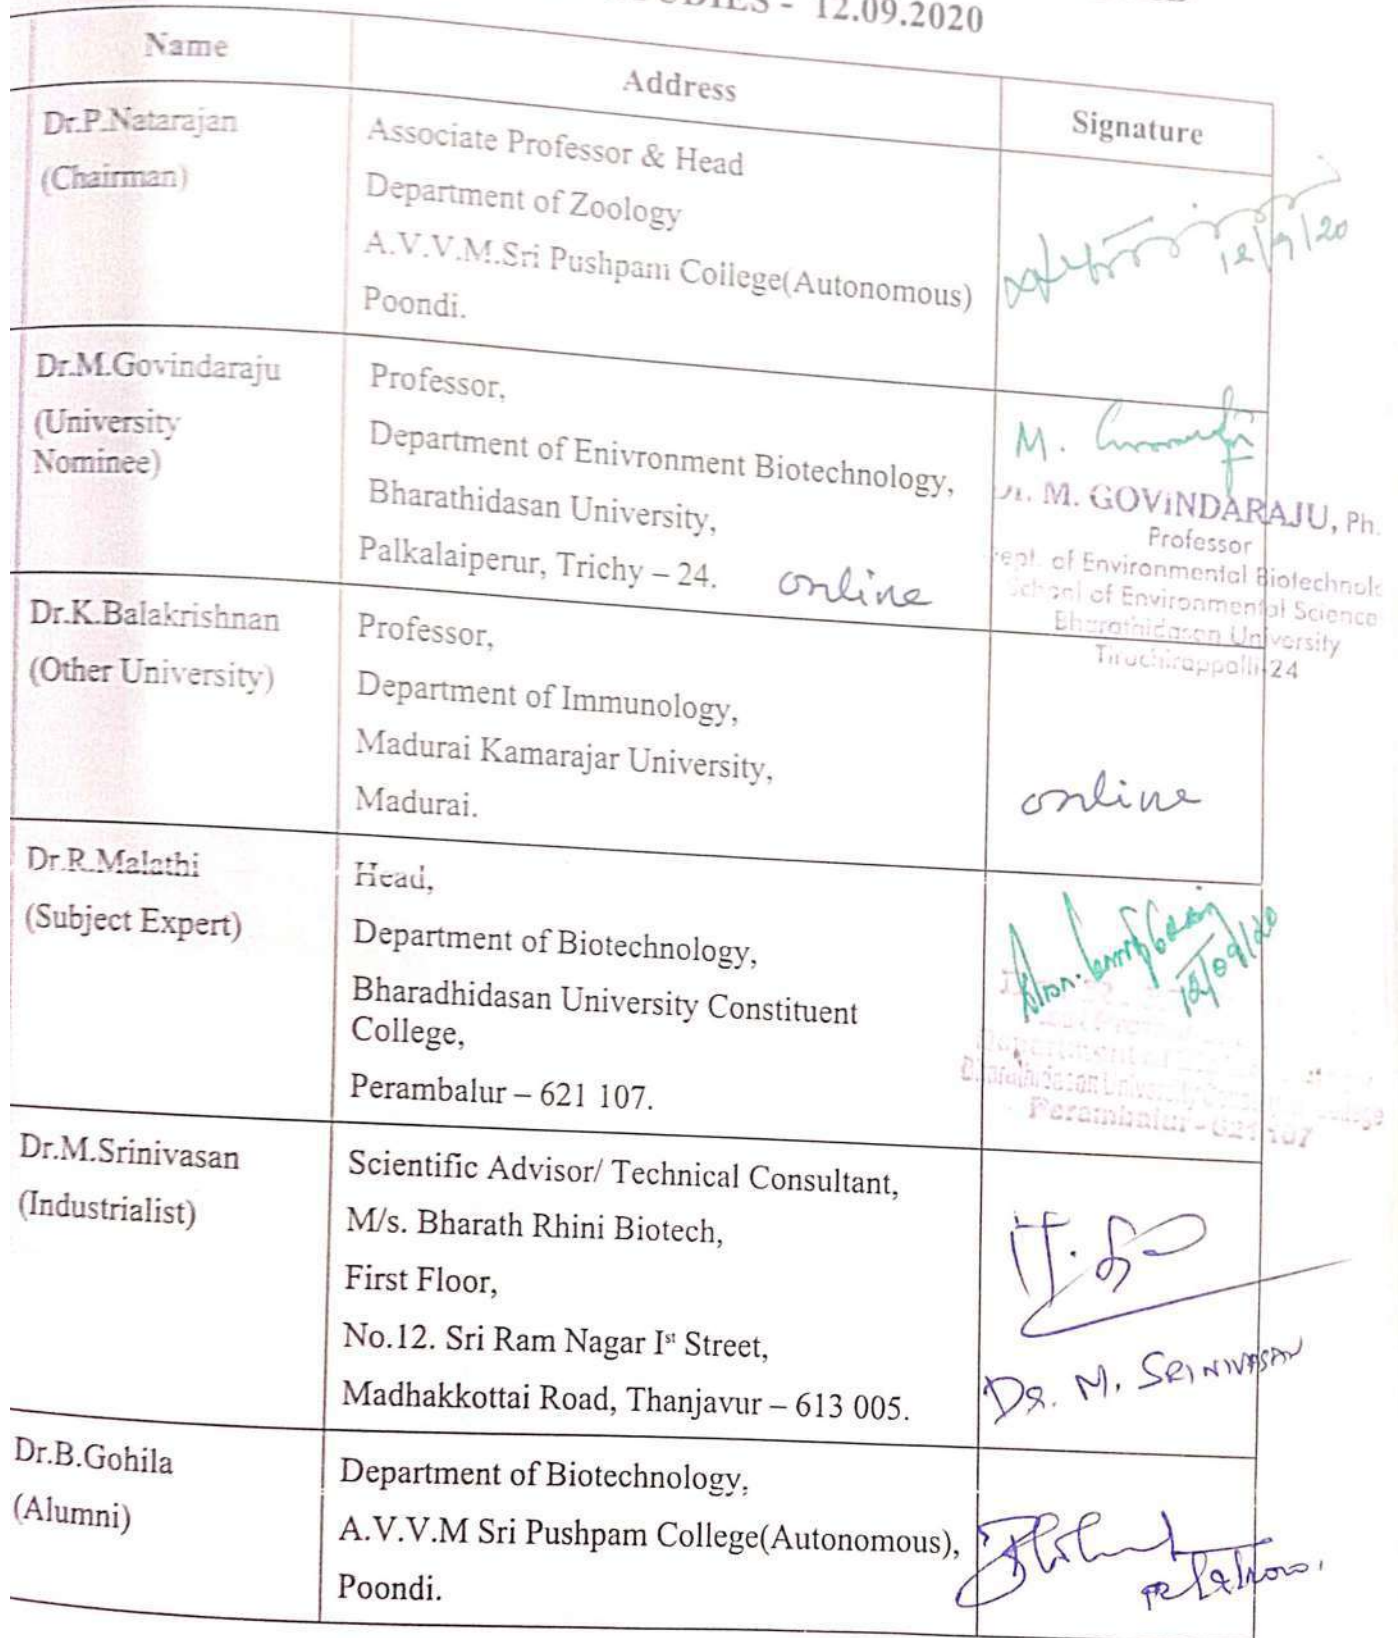 - 12.09.2020
Name
Address
Signature
Dr.P.Natarajan
(Chairman)
Associate Professor & Head
Department of Zoology
A.V.V.M.Sri Pushpam College(Autonomous)
Poondi.
12/9/20
Dr.M.Govindaraju
(University
Nominee)
Professor,
Department of Enivronment Biotechnology,
Bharathidasan University,
Palkalaiperur, Trichy – 24. online
M.
M. GOVINDARAJU, Ph.
Professor
of Environmental Biotechnol
School of Environmental Science
Bharathidasan University
Tiruchirappalli-24
Dr.K.Balakrishnan
(Other University)
Professor,
Department of Immunology,
Madurai Kamarajar University,
Madurai.
online
Dr.R.Malathi
(Subject Expert)
Head,
Department of Biotechnology,
Bharadhidasan University Constituent
College,
Perambalur – 621 107.
12/09/20
Department of
Bharathidasan University College
Perambalur - 621 107
Dr.M.Srinivasan
(Industrialist)
Scientific Advisor/ Technical Consultant,
M/s. Bharath Rhini Biotech,
First Floor,
No.12. Sri Ram Nagar Ist Street,
Madhakkottai Road, Thanjavur – 613 005.
DR. M. SRINIVASAN
Dr.B.Gohila
(Alumni)
Department of Biotechnology,
A.V.V.M Sri Pushpam College(Autonomous),
Poondi.